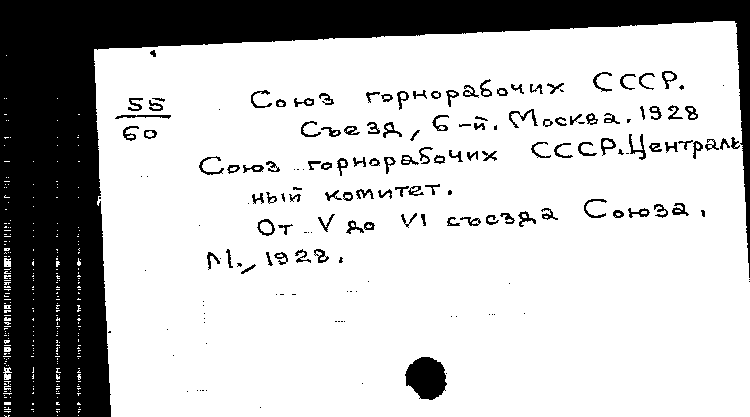 55
60
Союз горнорабочих СССР.
Съезд, 6-й. Москва. 1928
Союз горнорабочих СССР. Централь
ный комитет.
От V до VI съезда Союза.
М., 1928.